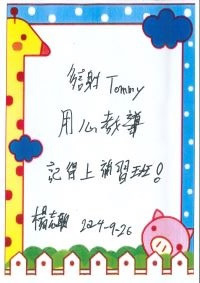 Tommy
用心教導
記得上補習班！
2024-9-26